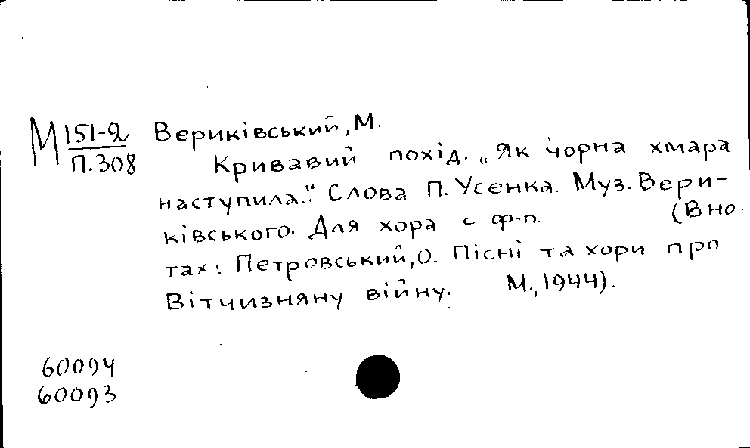 М 151-2 Вериківський, М.
П.308 Кривавий похід. „Як чорна хмара
наступила." Слова П. Усенка. Муз. Вери-
ківського. Для хора с ф-п. (В но
тах: Петровський, О. Пісні та хори про
Вітчизняну війну. М., 1944).
60094
60093